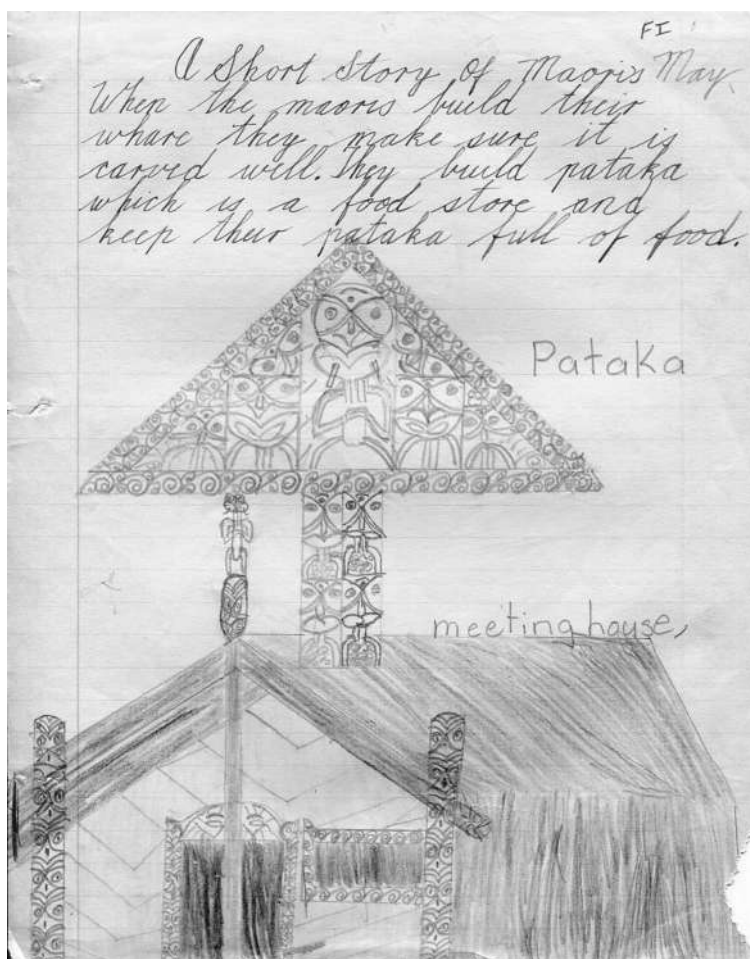 FI
A Short Story Of Maoris May
When the maoris build their
whare they make sure it is
carved well. They build pataka
which is a food store and
keep their pataka full of food.
Pataka
meeting house,